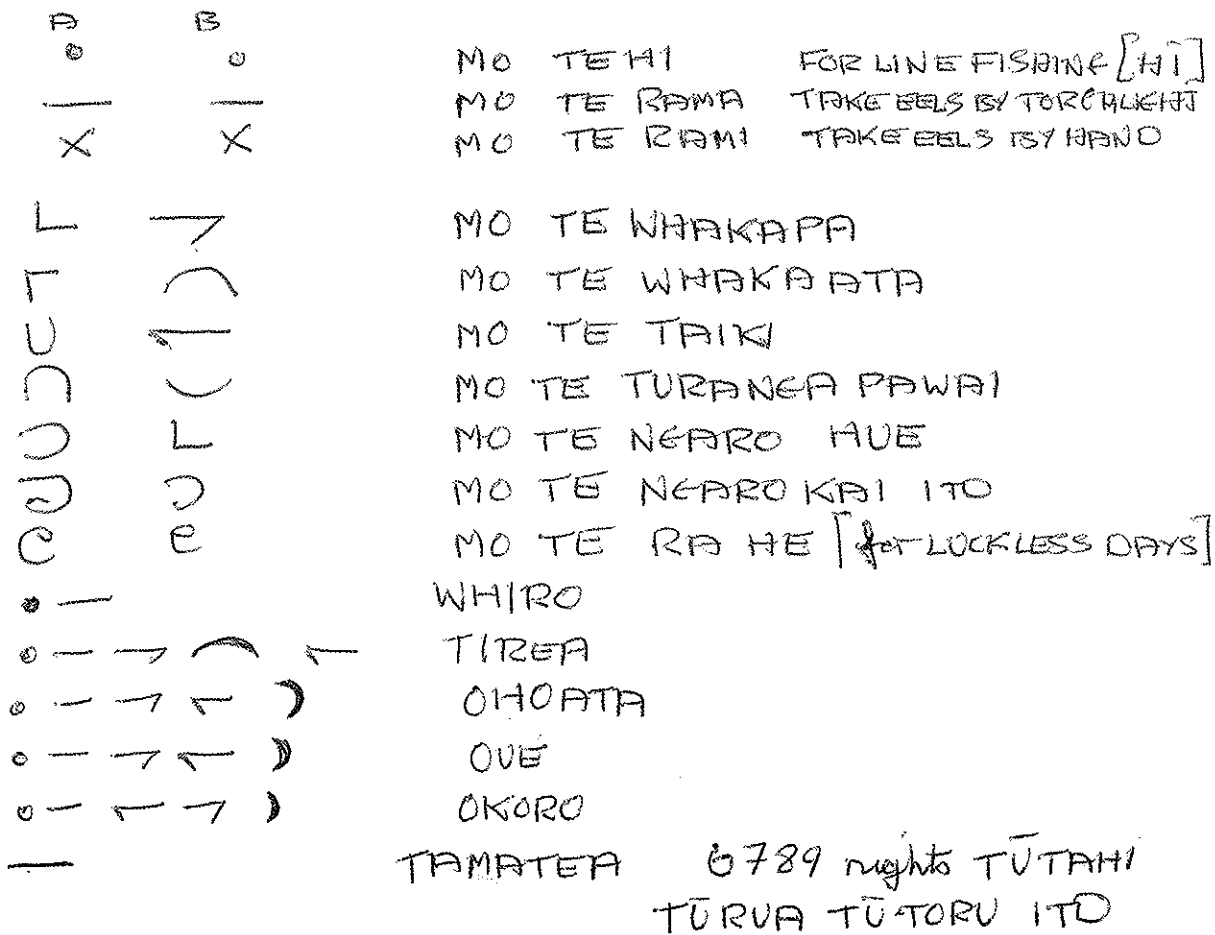 A B
MO TE HI FOR LINE FISHING [HĪ]
MO TE RAMA TAKE EELS BY TORCHLIGHT
MO TE RAMI TAKE EELS BY HAND
MO TE WHAKAPA
MO TE WHAKAATA
MO TE TAIKI
MO TE TURANGA PAWAI
MO TE NGARO HUE
MO TE NGARO KAI ITO
MO TE RA HE [for LUCKLESS DAYS]
WHIRO
TIREA
OHOATA
OUE
OKORO
TAMATEA 6789 nights TŪTAHI
TŪRUA TŪTORU ITO